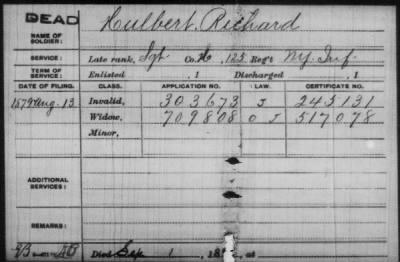 DEAD
NAME OF SOLDIER: Hulbert, Richard
SERVICE: Late rank, Sgt Co. H, 125 Reg't N.Y. Inf.
TERM OF SERVICE: Enlisted , 1 Discharged , 1
DATE OF FILING. CLASS. APPLICATION NO. LAW. CERTIFICATE NO.
1879 Aug. 13 Invalid, 303673 J 245131
Widow, 709808 O J 517078
Minor,
ADDITIONAL SERVICES:
REMARKS:
Died Sep 1, 18 , at